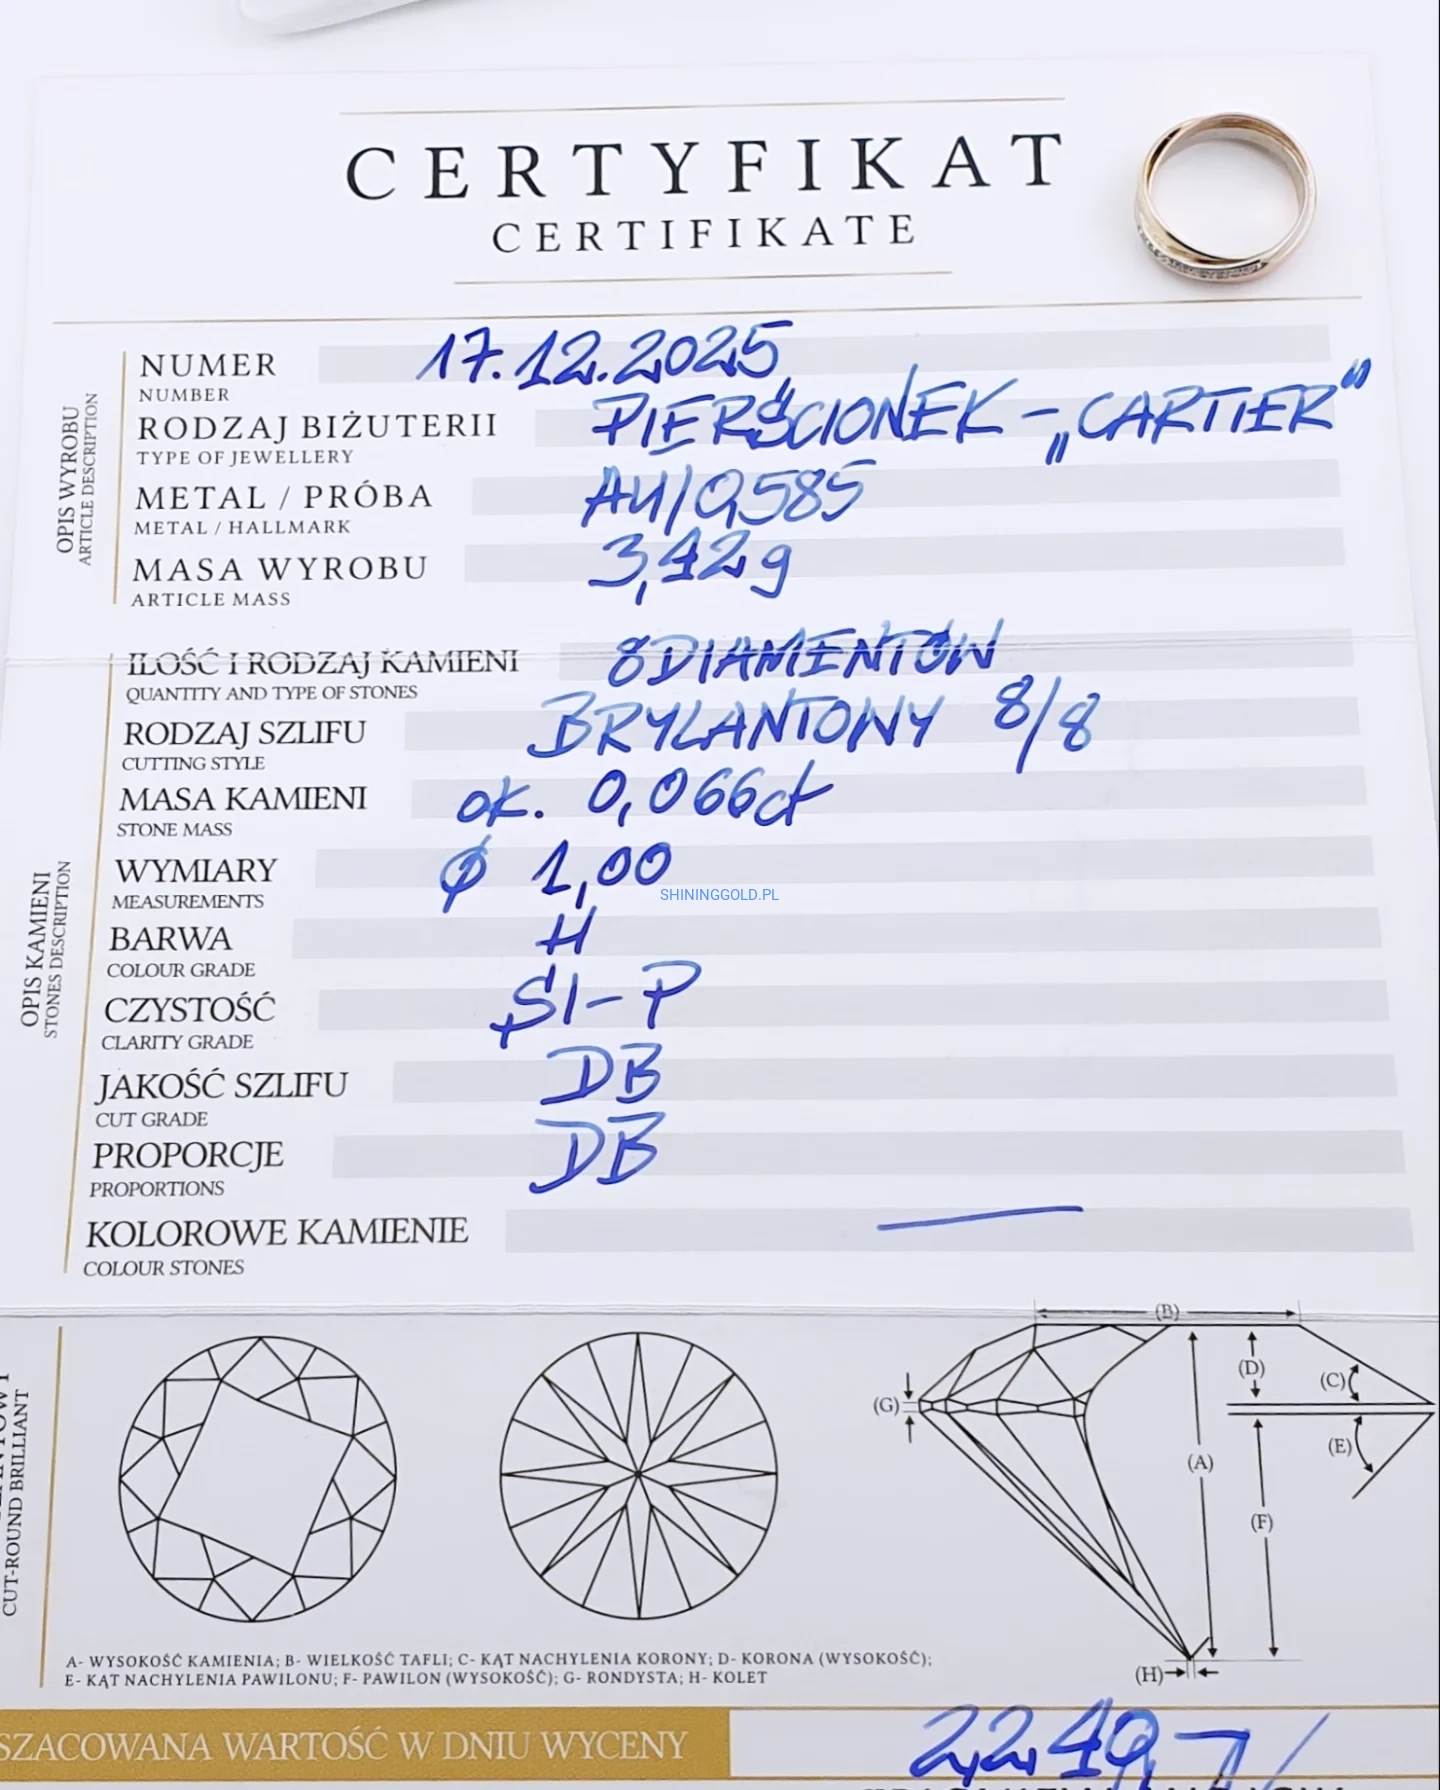 CERTYFIKAT
CERTIFIKATE
OPIS WYROBU
ARTICLE DESCRIPTION
NUMER 17.12.2025
NUMBER
RODZAJ BIŻUTERII PIERŚCIONEK - „CARTIER”
TYPE OF JEWELLERY
METAL / PRÓBA AU/0,585
METAL / HALLMARK
MASA WYROBU 3,42g
ARTICLE MASS
OPIS KAMIENI
STONES DESCRIPTION
ILOŚĆ I RODZAJ KAMIENI 8 DIAMENTÓW
QUANTITY AND TYPE OF STONES
RODZAJ SZLIFU BRYLANTOWY 8/8
CUTTING STYLE
MASA KAMIENI ok. 0,066ct
STONE MASS
WYMIARY ϕ 1,00
MEASUREMENTS
SHININGGOLD.PL
BARWA H
COLOUR GRADE
CZYSTOŚĆ SI-P
CLARITY GRADE
JAKOŚĆ SZLIFU DB
CUT GRADE
PROPORCJE DB
PROPORTIONS
KOLOROWE KAMIENIE —
COLOUR STONES
CUT-ROUND BRILLIANT
(B)
(D)
(C)
(G)
(E)
(A)
(F)
(H)
A- WYSOKOŚĆ KAMIENIA; B- WIELKOŚĆ TAFLI; C- KĄT NACHYLENIA KORONY; D- KORONA (WYSOKOŚĆ);
E- KĄT NACHYLENIA PAWILONU; F- PAWILON (WYSOKOŚĆ); G- RONDYSTA; H- KOLET
SZACOWANA WARTOŚĆ W DNIU WYCENY 2240,-/